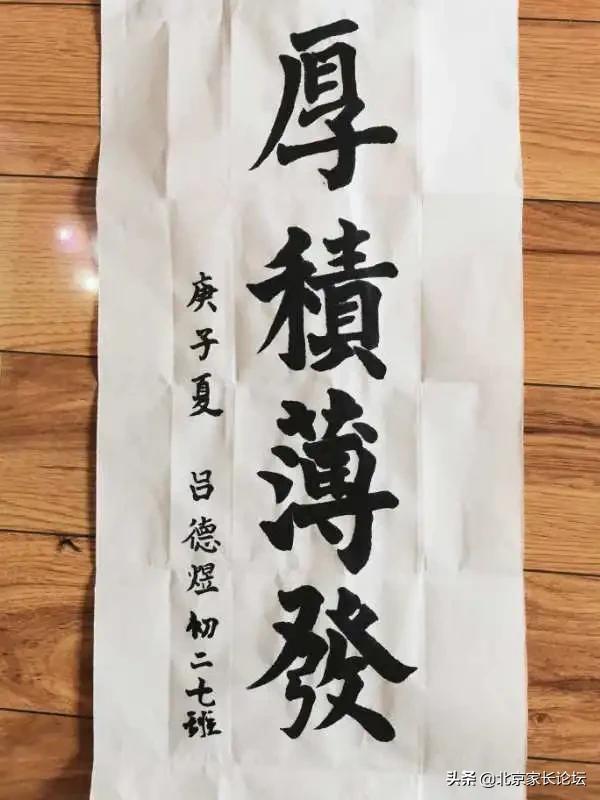 厚積薄發
庚子夏 吕德煜初二七班
头条 @北京家长论坛